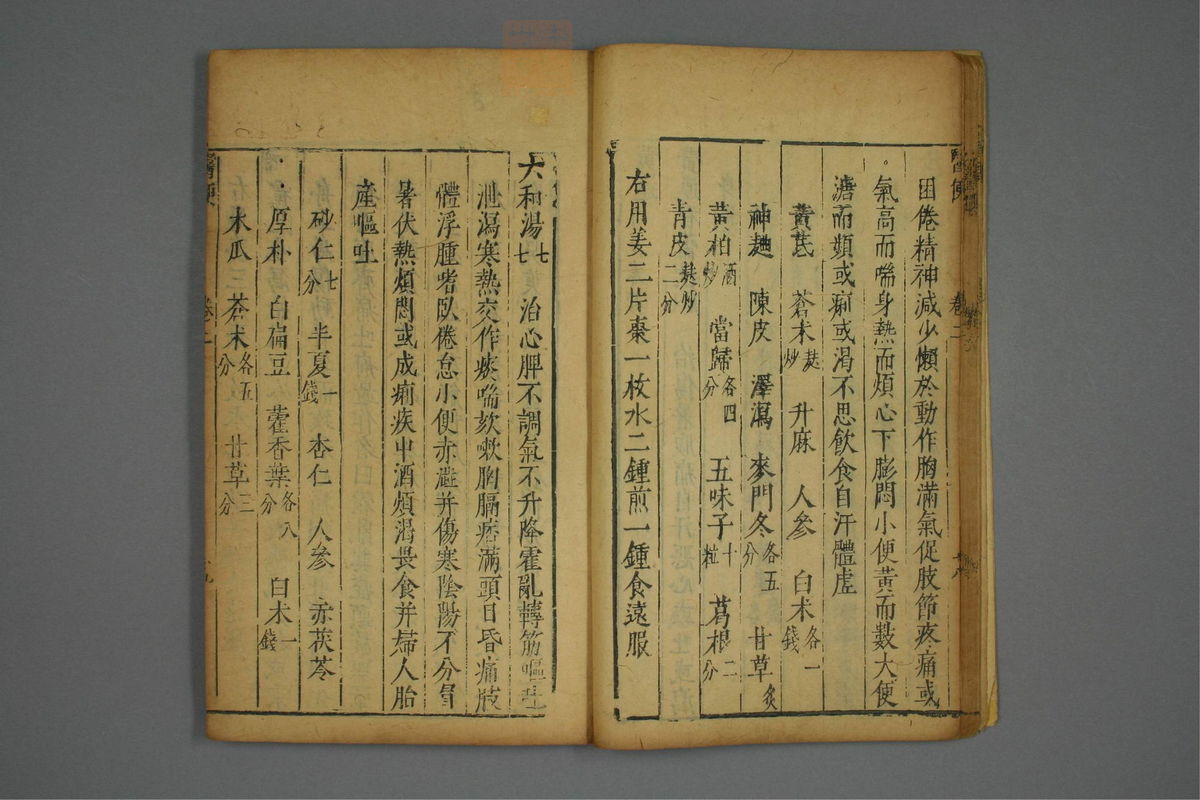 醫便 卷二 十八
困倦精神減少懶於動作胸滿氣促肢節疼痛或
氣高而喘身熱而煩心下膨悶小便黃而數大便
溏而頻或痢或渴不思飲食自汗體虛
黃芪 蒼朮麩炒 升麻 人參 白朮各一錢
神麯 陳皮 澤瀉 麥門冬各五分 甘草炙
黃柏酒炒 當歸各四分 五味子十粒 葛根二分
青皮麩炒二分
右用姜二片棗一枚水二鍾煎一鍾食遠服
六和湯七七 治心脾不調氣不升降霍亂轉筋嘔吐
泄瀉寒熱交作痰喘欬嗽胸膈痞滿頭目昏痛肢
體浮腫耆臥倦怠小便赤澁并傷寒陰陽不分冒
暑伏熱煩悶或成痢疾中酒煩渴畏食并婦人胎
產嘔吐
砂仁七分 半夏一錢 杏仁 人參 赤茯苓
厚朴 白扁豆 藿香葉各八分 白朮一錢
木瓜 蒼朮各五分 甘草三分
醫便 卷二